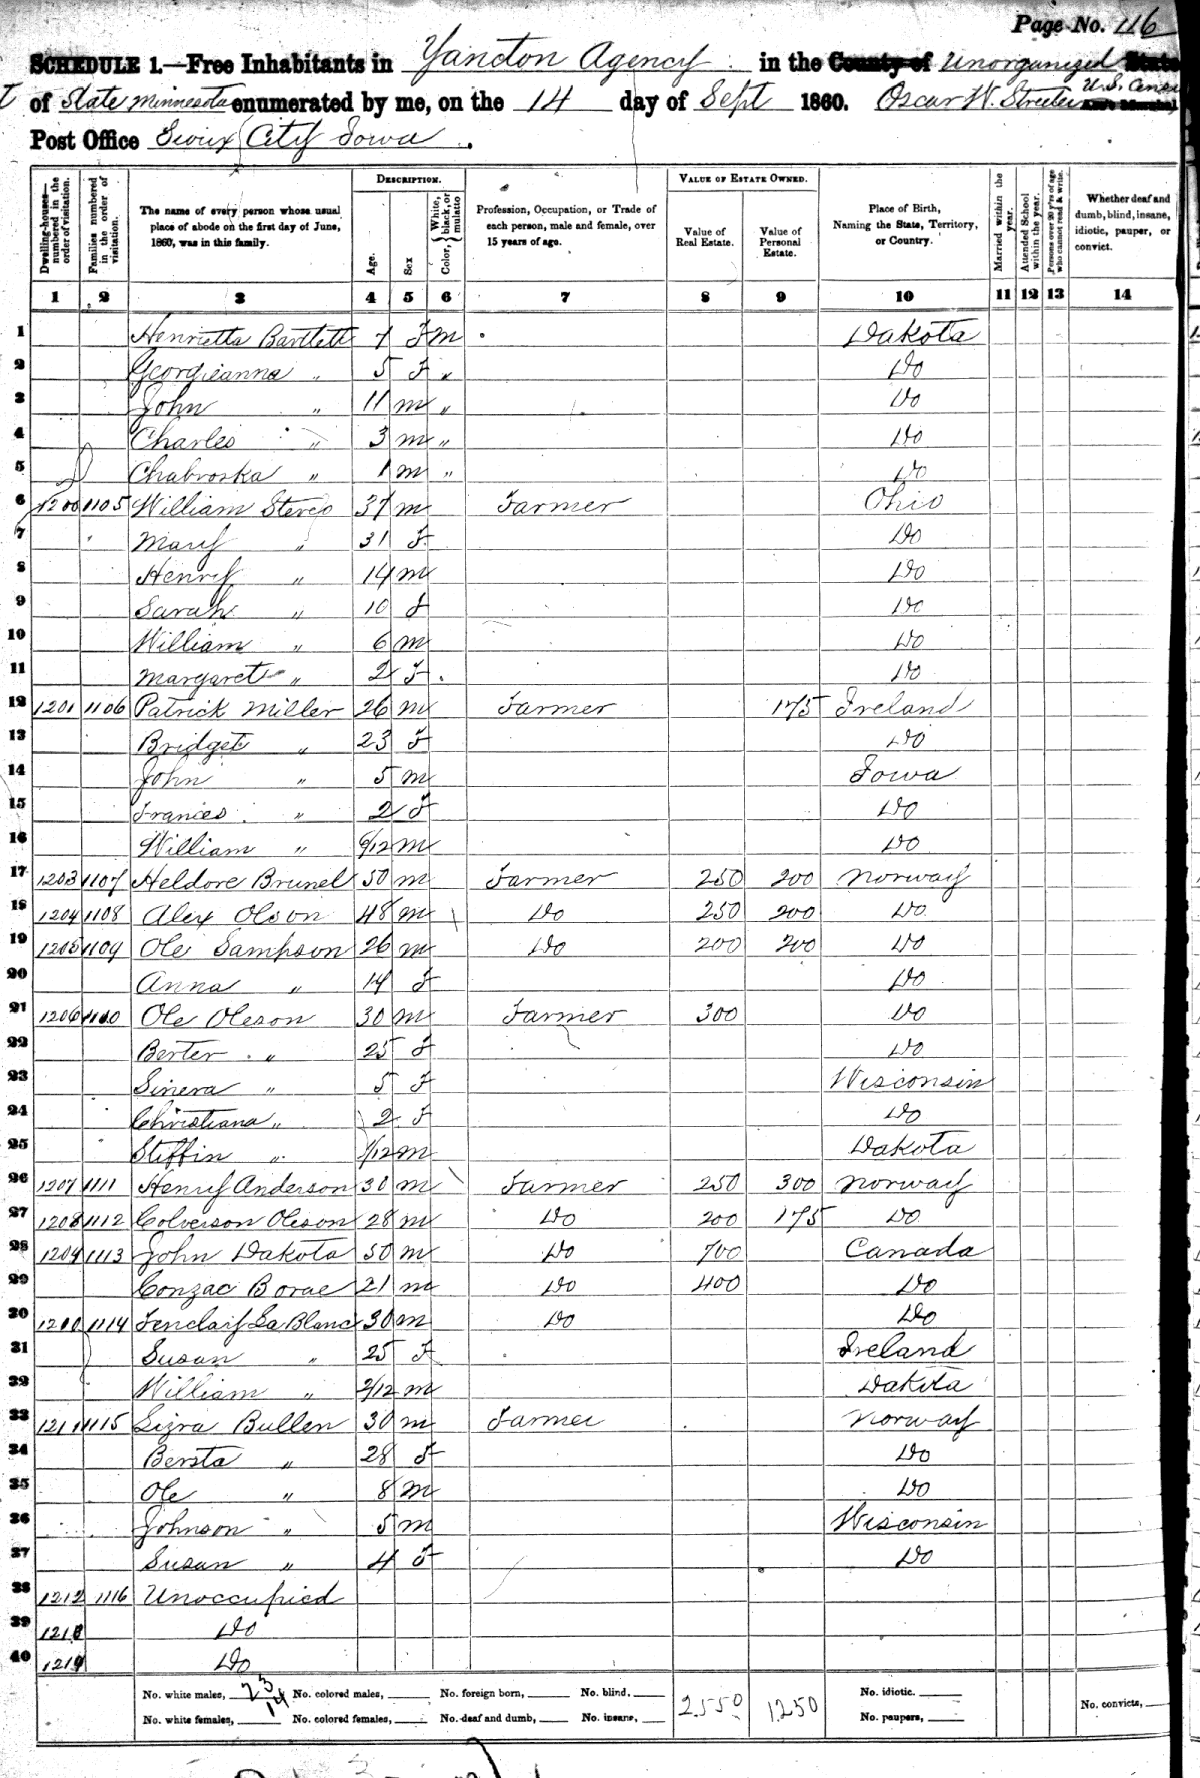 Page No. 116
SCHEDULE 1.—Free Inhabitants in Yancton Agency in the County of Unorganized State
of State Minnesota enumerated by me, on the 14 day of Sept 1860. Oscar W. Streeter U.S. Ass't Marshal
Post Office Sioux City Iowa.
Dwelling-houses—numbered in the order of visitation.
Families numbered in the order of visitation.
The name of every person whose usual place of abode on the first day of June, 1860, was in this family.
DESCRIPTION.
Age.
Sex
Color, White, black, or mulatto
Profession, Occupation, or Trade of each person, male and female, over 15 years of age.
VALUE OF ESTATE OWNED.
Value of Real Estate.
Value of Personal Estate.
Place of Birth, Naming the State, Territory, or Country.
Married within the year.
Attended School within the year.
Persons over 20 y'rs of age who cannot read & write.
Whether deaf and dumb, blind, insane, idiotic, pauper, or convict.
1 2 3 4 5 6 7 8 9 10 11 12 13 14
1 Henrietta Bartlett 7 F m Dakota
2 Georgieanna " 5 F " Do
3 John " 11 m " Do
4 Charles " 3 m " Do
5 Chabroska " 1 m " Do
6 1200 1105 William Steres 37 m Farmer Ohio
7 Mary " 31 F Do
8 Henry " 14 m Do
9 Sarah " 10 f Do
10 William " 6 m Do
11 Margaret " 2 F Do
12 1201 1106 Patrick Miller 26 m Farmer 175 Ireland
13 Bridget " 23 F Do
14 John " 5 m Iowa
15 Frances " 2 F Do
16 William " 6/12 m Do
17 1203 1107 Heldore Brunel 50 m Farmer 250 200 Norway
18 1204 1108 Alex Olson 48 m Do 250 200 Do
19 1205 1109 Ole Sampson 26 m Do 200 200 Do
20 Anna " 14 F Do
21 1206 1110 Ole Oleson 30 m Farmer 300 Do
22 Berter " 25 F Do
23 Sinera " 5 F Wisconsin
24 Christiana " 2 F Do
25 Steffin " 1/12 m Dakota
26 1207 1111 Henry Anderson 30 m Farmer 250 300 Norway
27 1208 1112 Colverson Oleson 28 m Do 200 175 Do
28 1209 1113 John Dakota 50 m Do 700 Canada
29 Conzac Borae 21 m Do 400 Do
30 1210 1114 Fenclaif La Blanc 30 m Do Do
31 Susan " 25 F Ireland
32 William " 2/12 m Dakota
33 1211 1115 Lizra Bullen 30 m Farmer Norway
34 Bersta " 28 F Do
35 Ole " 8 m Do
36 Johnson " 5 m Wisconsin
37 Susan " 4 F Do
38 1212 1116 Unoccupied
39 1213 Do
40 1214 Do
No. white males, 23 No. colored males, No. foreign born, No. blind, 2550 1250 No. idiotic.
No. white females, 14 No. colored females, No. deaf and dumb, No. insane, No. paupers, No. convicts,